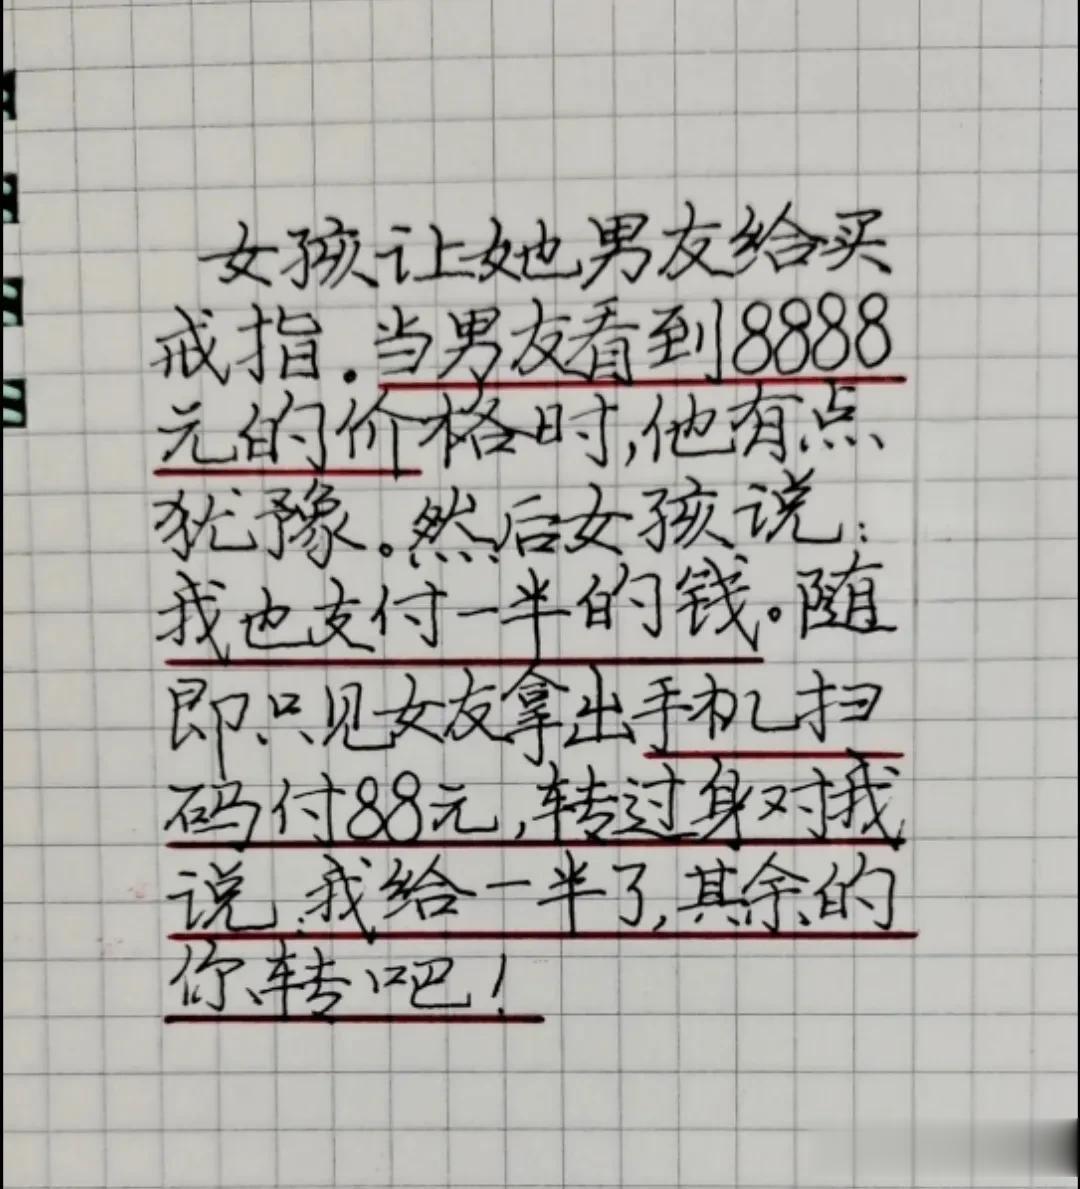 女孩让她男友给买
戒指.当男友看到8888
元的价格时,他有点
犹豫。然后女孩说:
我也支付一半的钱。随
即只见女友拿出手机扫
码付88元,转过身对我
说:我给一半了,其余的
你转吧!